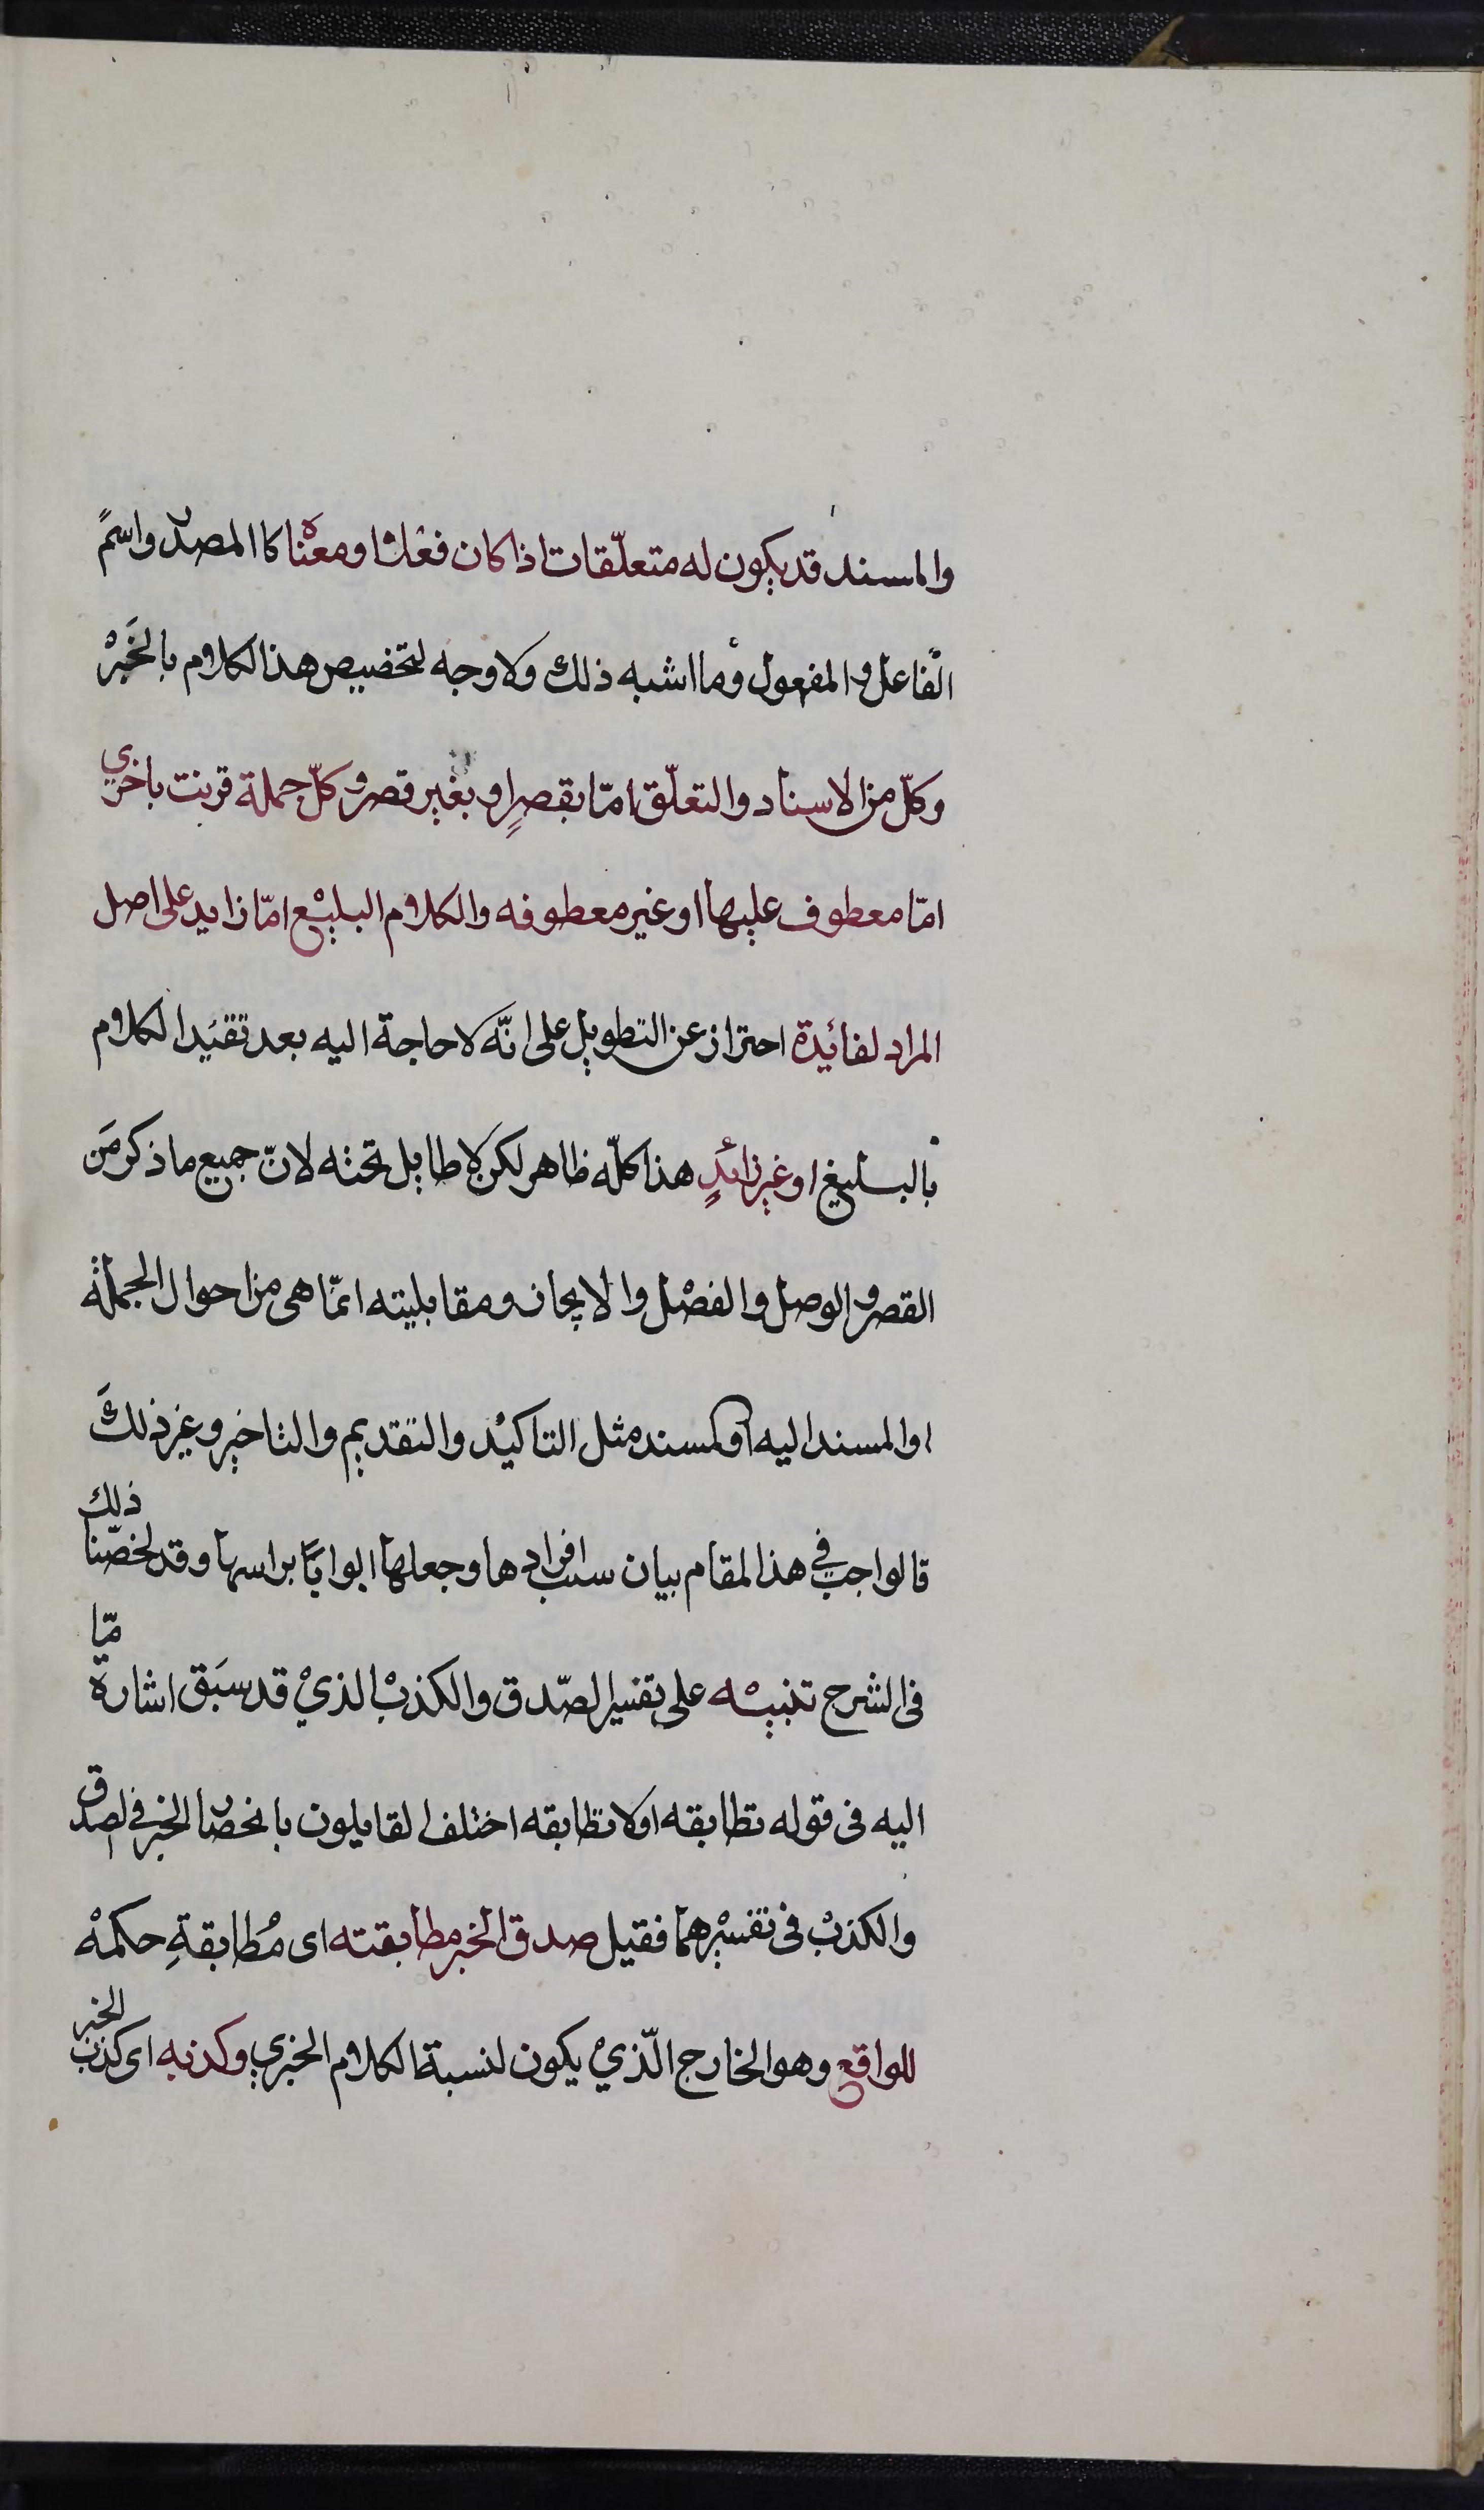 والمسند قد يكون له متعلّقات اذا كان فعلا او معناه كا المصدر واسم
الفاعل والمفعول وما اشبه ذلك ولا وجه لتخصيص هذا لكلام بالخبر
وكلّ من الاسناد والتعلّق امّا بقصرٍ او بغير قصر وكلّ جملة قرنت باخرى
امّا معطوف عليها او غير معطوفه والكلام البليغ امّا زايد على اصل
المراد لفائدة احتراز عن التطويل على انّه لا حاجة اليه بعد تقيد الكلام
بالبليغ او غير زائدٍ هذا كلّه ظاهر لكن لا طايل تحته لانّ جميع ما ذكر من
القصر والوصل والفصل والايجاز ومقابليته انّما هى من احوال الجملة
او المسند اليه او لمسند مثل التاكيد والتقديم والتاخير وغير ذلك
فالواجب في هذا لمقام بيان سبب افراد ها وجعلها ابوابًا براسها وقد لخصّنا ذلك
فى الشرح تنبيه على تفسير الصّدق والكذب الذي قد سبق اشارة مّا
اليه فى قوله تطابقه اولا تطابقه اختلف القايلون بانحصار الخبر في لصدق
والكذب فى تفسيرهما فقيل صدق الخبر مطابقته اى مُطابقةِ حكمه
للواقع وهو الخارج الّذي يكون لنسبة الكلام الخبري وكذبه اى كذب الخبر